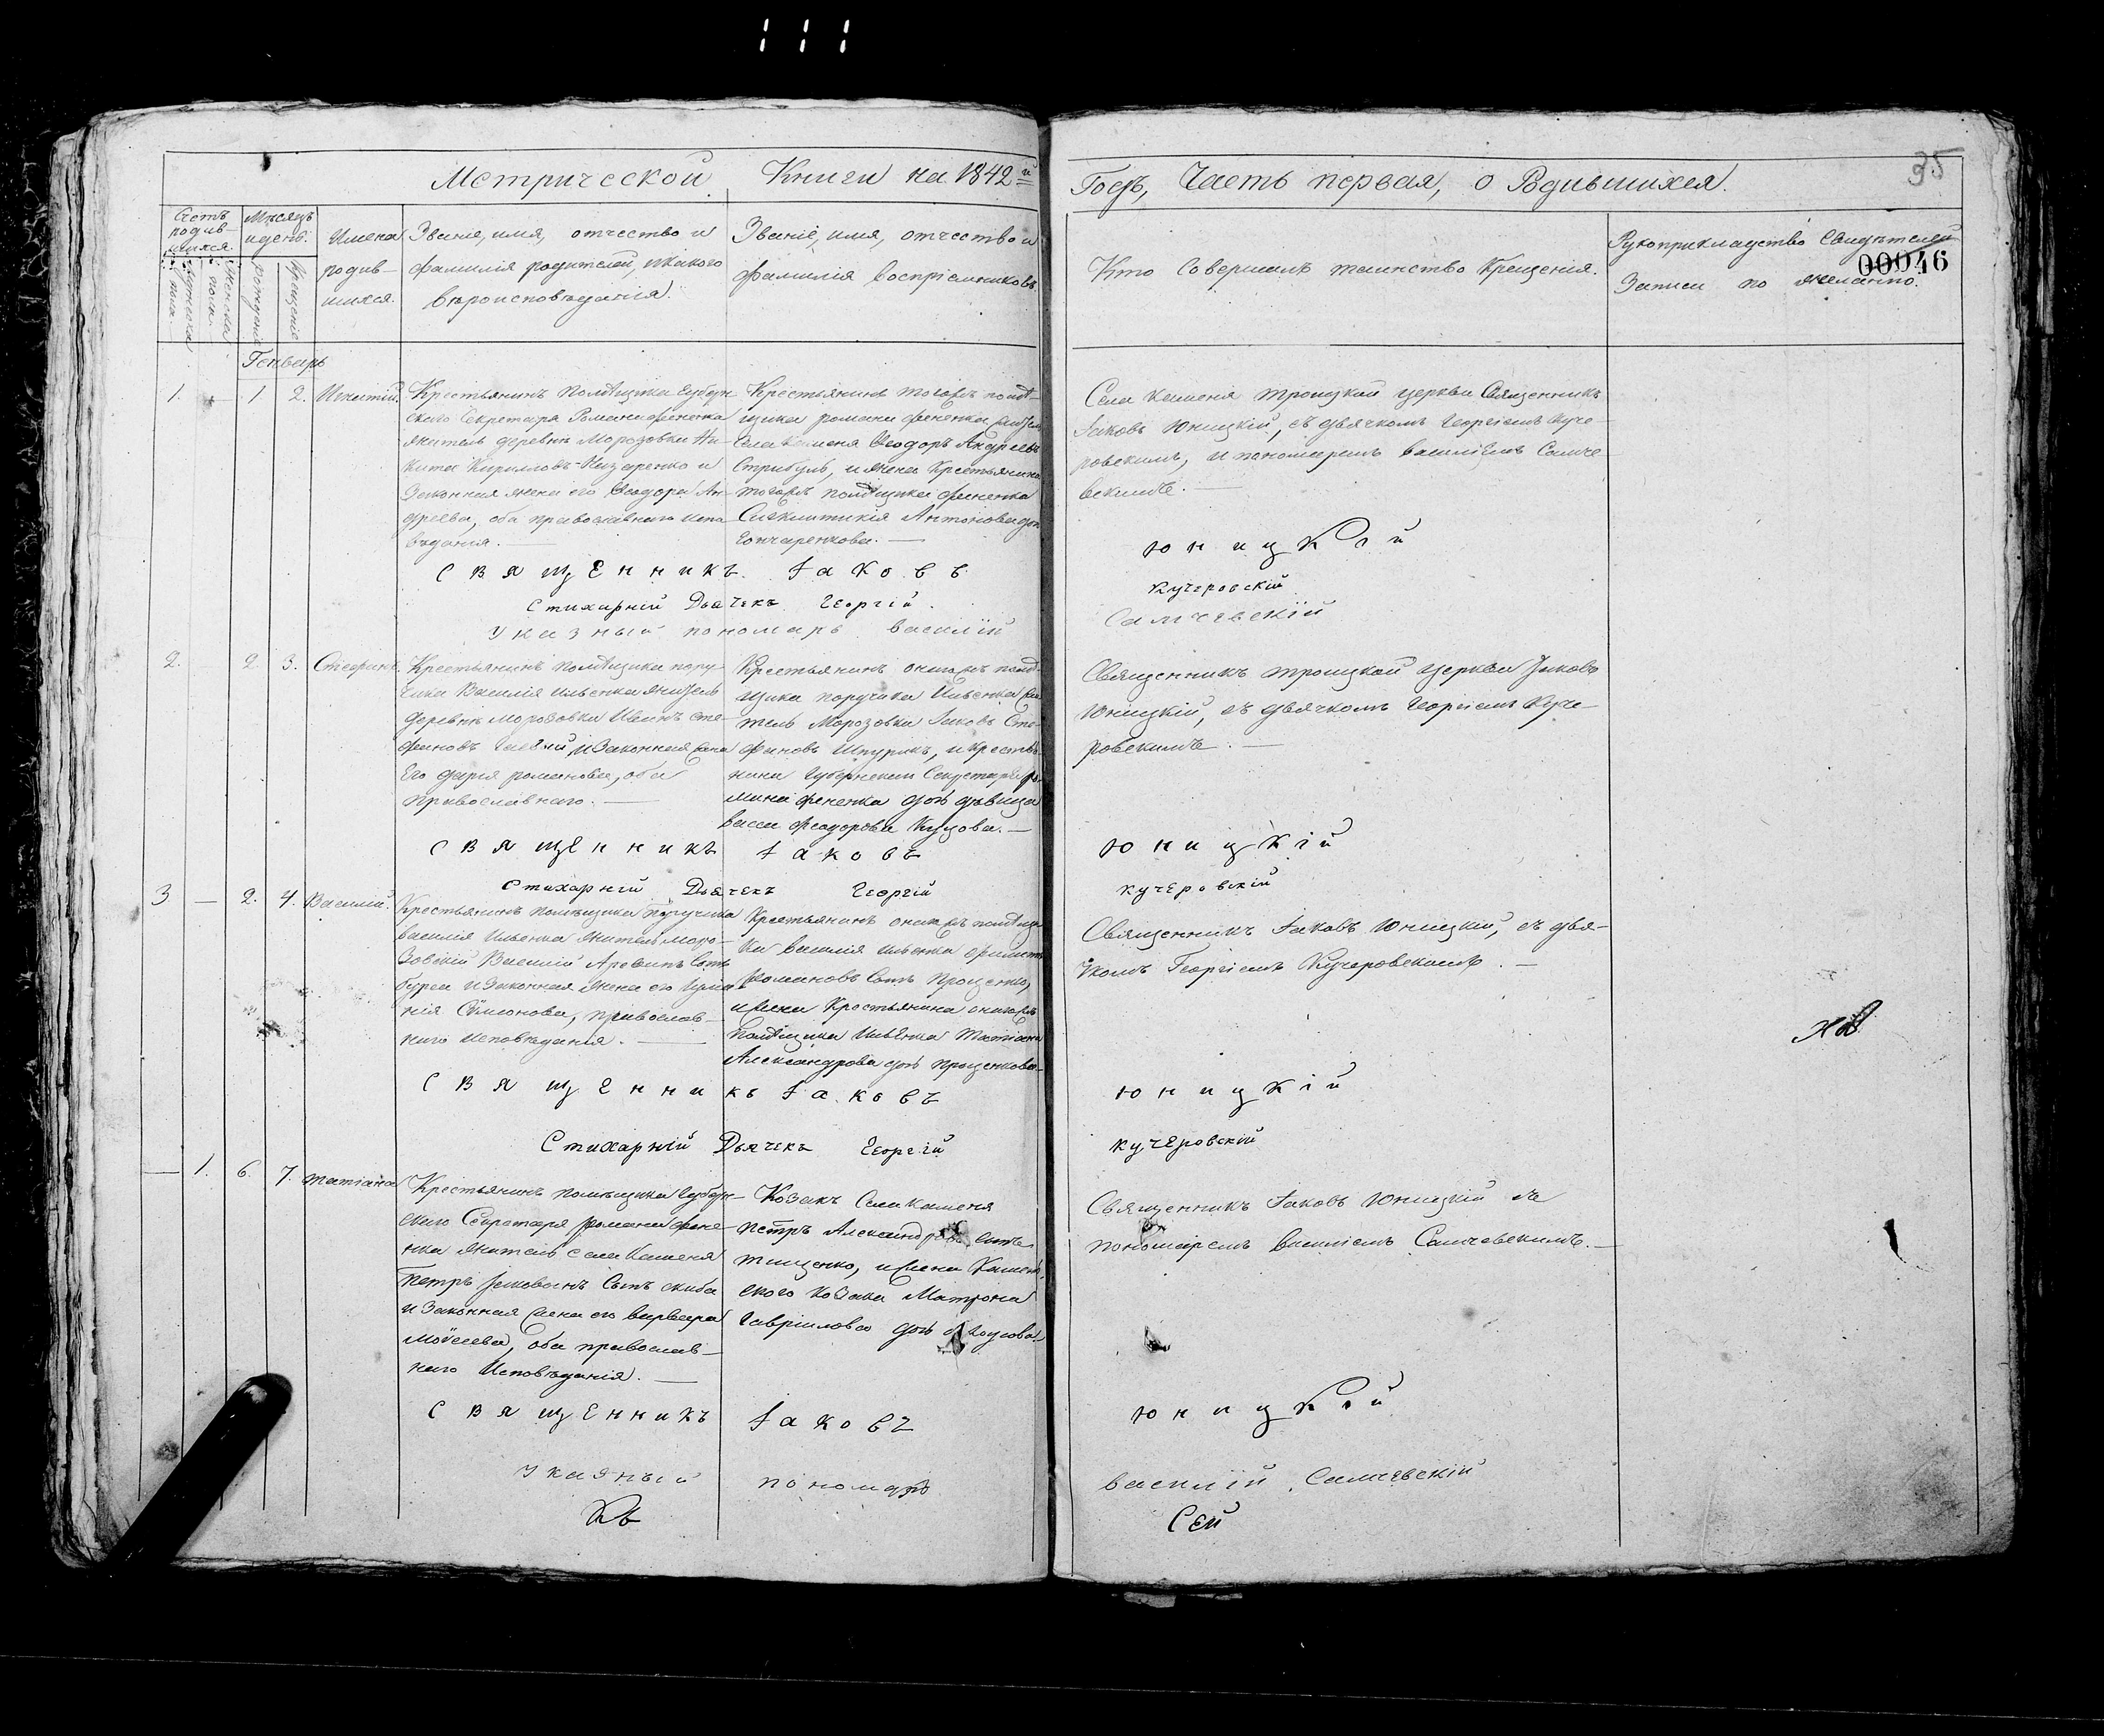 Метрической Книги на 1842й
Годъ, Часть первая, о Родившихся.
35
00046
Счетъ родив-
шихся.
Мужеска пола.
Женска пола.
Мѣсяцъ
и день.
рожденія
Крещенія
Имена
родив-
шихся.
Званіе, имя, отчество и
фамилія родителей, и какого
вѣроисповѣданія.
Званіе, имя, отчество и
фамилія воспріемниковъ
Кто Совершалъ таинство Крещенія.
Рукоприкладство Свидѣтелей
Записи по желанію.
Генварь
1. — 1 2. Игнатій.
Крестьянинъ помѣщика Губерн
скаго Секретаря Романа Фененка
житель деревни Морозовки Ни-
кита Кирилловъ Назаренко и
Законная жена его Ѳеодора Ан-
дреева, оба православнаго испо
вѣданія. —
Крестьянинъ тогожъ помѣ-
щика романа фененка
села Каменя Ѳеодоръ Андреевъ
и жена Крестьянина
тогожъ помѣщика фененка
Антонова дочь
Гончаренкова. —
Села Каменя троицкой церкви Священникъ
Іаковъ Юницкій, съ дьячкомъ Георгіемъ Куче-
ровскимъ, и пономаремъ василіемъ Самче
вскимъ. —
Священникъ Іаковъ
Юницкій
Стихарній Дьячекъ Георгій.
Кучеровскій
Указный пономарь василій
Самчевскій
2. — 2 3. Стефанъ.
Крестьянинъ помѣщика пору-
чика Василія Ильенка житель
деревни Морозовки Иванъ Сте-
фановъ и Законная жена
Его дарія романова, оба
православнаго. —
Крестьянинъ оногожъ помѣ-
щика поручика Ильенка жи
тель Морозовки Іаковъ Сте-
фановъ Шпурикъ, и крестья-
нина Губернскаго Секретаря ро-
мана фененка дочь дѣвица
васса феодорова Куцова. —
Священникъ троицкой церкви Іаковъ
Юницкій, съ дьячкомъ Георгіемъ Куче-
ровскимъ. —
Священникъ Іаковъ
Юницкій
Стихарній Дьячекъ Георгій
Кучеровскій
3 — 2. 4. Василій.
Крестьянинъ помѣщика поручика
василія Ильенка житель Моро-
зовскій Василій Сынъ
и Законная жена его
Сѵмеонова, православ-
наго исповѣданія. —
Крестьянинъ оногожъ помѣщи-
ка василія ильенка
романовъ Сынъ Проценко,
и жена Крестьянина оногожъ
помѣщика Ильенка Татіана
Александрова дочь проценкова
Священникъ Іаковъ Юницкій, съ дья-
чкомъ Георгіемъ Кучеровскимъ. —
Священникъ Іаковъ
Юницкій
Стихарній Дьячекъ Георгій
Кучеровскій
— 1. 6. 7. татіана
Крестьянинъ помѣщика Губерн-
скаго Секретаря романа фене-
нка житель села Каменя
петръ Сынъ скиба
и Законная жена его варвара
Моѵсеева, оба православ-
наго Исповѣданія. —
Козакъ Села Каменя
петръ Александровъ сынъ
тищенко, и жена Камен-
ского козака Матрона
Гавріилова дочь
Священникъ Іаковъ Юницкій съ
пономаремъ василіемъ Самчевскимъ. —
Священникъ Іаковъ
Юницкій
указный пономарь
василій Самчевскій
Сей